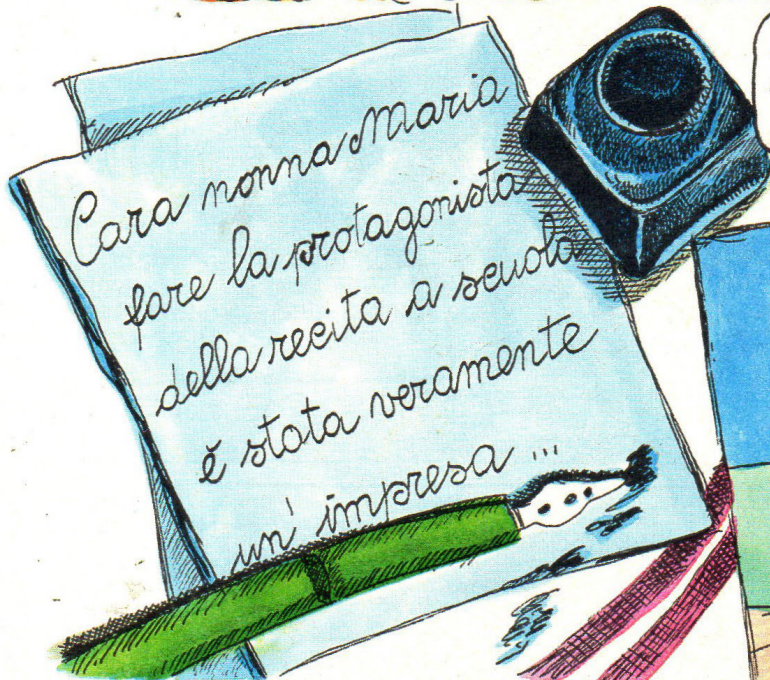 Cara nonna Maria
fare la protagonista
della recita a scuola
è stata veramente
un' impresa ...